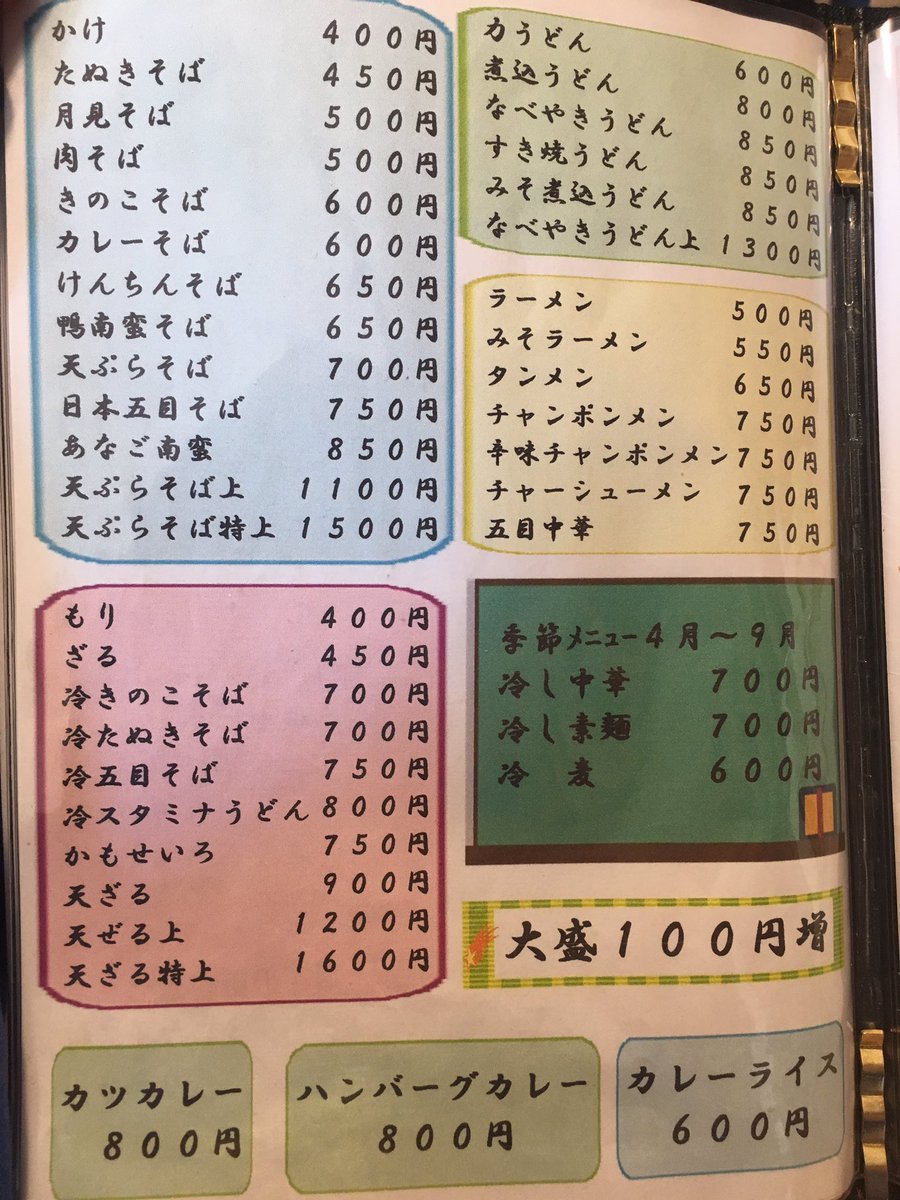 かけ 400円
たぬきそば 450円
月見そば 500円
肉そば 500円
きのこそば 600円
カレーそば 600円
けんちんそば 650円
鴨南蛮そば 650円
天ぷらそば 700円
日本五目そば 750円
あなご南蛮 850円
天ぷらそば上 1100円
天ぷらそば特上 1500円
力うどん 600円
煮込うどん 800円
なべやきうどん 850円
すき焼うどん 850円
みそ煮込うどん 850円
なべやきうどん上 1300円
ラーメン 500円
みそラーメン 550円
タンメン 650円
チャンポンメン 750円
辛味チャンポンメン 750円
チャーシューメン 750円
五目中華 750円
もり 400円
ざる 450円
冷きのこそば 700円
冷たぬきそば 700円
冷五目そば 750円
冷スタミナうどん 800円
かもせいろ 750円
天ざる 900円
天ぜる上 1200円
天ざる特上 1600円
季節メニュー4月～9月
冷し中華 700円
冷し素麺 700円
冷 麦 600円
大盛100円増
カツカレー
800円
ハンバーグカレー
800円
カレーライス
600円